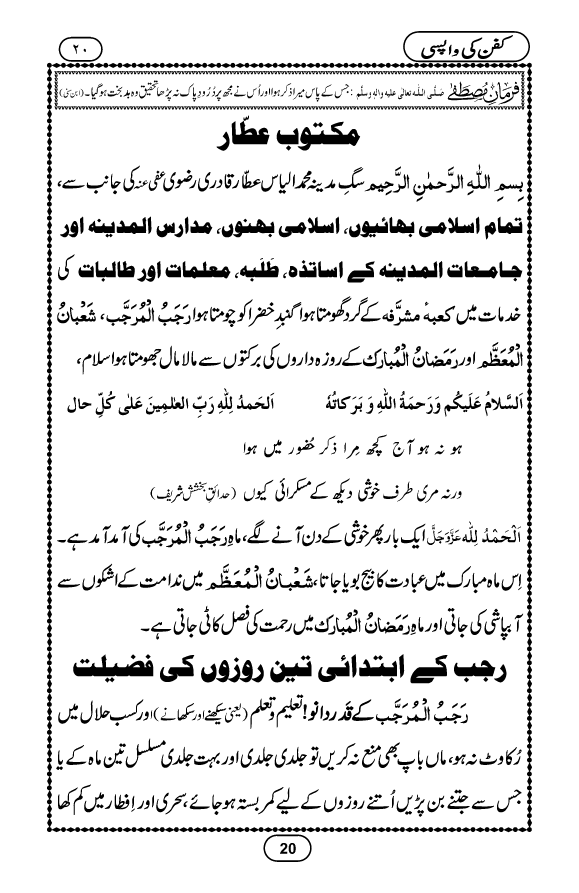 کفن کی واپسی
۲۰
فرمانِ مُصطَفٰے صَلَّی اللہ تعالٰی علیہ والہٖ وسلَّم : جس کے پاس میرا ذکر ہوا اور اُس نے مجھ پر دُرُودِ پاک نہ پڑھا تحقیق وہ بد بخت ہو گیا۔ (ابن سنی)
مکتوبِ عطّار
بِسمِ اللہِ الرَّحمٰنِ الرَّحِیم سگِ مدینہ محمد الیاس عطّار قادری رضوی عفی عنہ کی جانب سے،
تمام اسلامی بھائیوں، اسلامی بھنوں، مدارس المدینہ اور
جامعات المدینہ کے اساتذہ، طَلَبہ، معلمات اور طالبات کی
خدمات میں کعبہٴ مشرَّفہ کے گرد گھومتا ہوا گنبدِ خضرا کو چومتا ہوا رَجَبُ الْمُرَجَّب، شَعْبانُ
الْمُعَظَّم اور رَمَضانُ الْمُبارَک کے روزہ داروں کی برکتوں سے مالا مال جھومتا ہوا سلام،
اَلسَّلامُ عَلَیکُم وَرَحمَۃُ اللہِ وَ بَرَکاتُہٗ اَلحَمدُ لِلّٰہِ رَبِّ العٰلمِینَ عَلٰی کُلِّ حال
ہو نہ ہو آج کچھ مِرا ذکر حُضور میں ہوا
ورنہ مری طرف خوشی دیکھ کے مسکرائی کیوں (حدائقِ بخشش شریف)
اَلْحَمْدُ لِلّٰہ عَزَّوَجَلَّ ایک بار پھر خوشی کے دن آنے لگے، ماہِ رَجَبُ الْمُرَجَّب کی آمد آمد ہے۔
اِس ماہِ مبارک میں عبادت کا بیج بویا جاتا، شَعْبانُ الْمُعَظَّم میں ندامت کے اشکوں سے
آبپاشی کی جاتی اور ماہِ رَمَضانُ الْمُبارَک میں رحمت کی فصل کاٹی جاتی ہے۔
رجب کے ابتدائی تین روزوں کی فضیلت
رَجَبُ الْمُرَجَّب کے قدر دانو! تعلیم و تعلم (یعنی سیکھنے اور سکھانے) اور کسبِ حلال میں
رُکاوٹ نہ ہو، ماں باپ بھی منع نہ کریں تو جلدی جلدی اور بہت جلدی مسلسل تین ماہ کے یا
جس سے جتنے بن پڑیں اُتنے روزوں کے لیے کمر بستہ ہو جائے، سحری اور اِفطار میں کم کھا
20